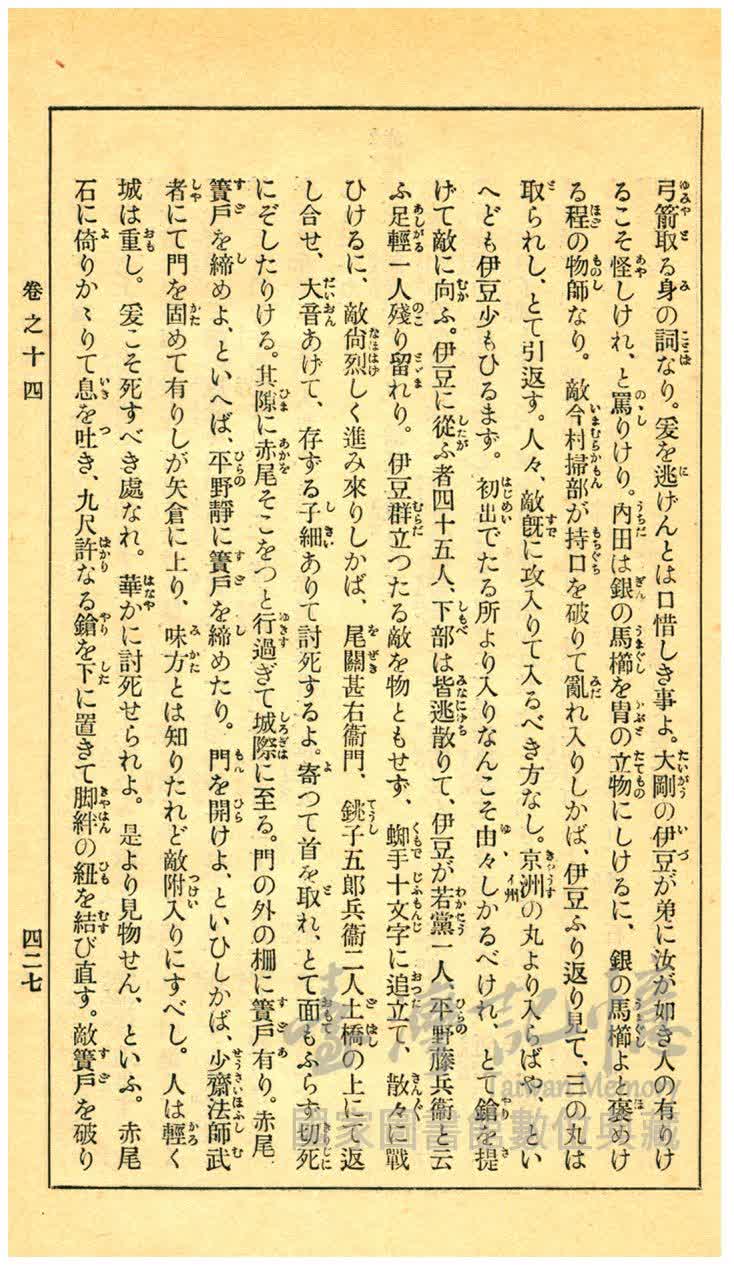 弓箭取る身の詞なり。爰を逃げんとは口惜しき事よ。大剛の伊豆が弟に汝が如き人の有りけ
るこそ怪しけれ、と罵りけり。內田は銀の馬櫛を冑の立物にしけるに、銀の馬櫛よと褒めけ
る程の物師なり。敵今村掃部が持口を破りて亂れ入りしかば、伊豆ふり返り見て、三の丸は
取られし、とて引返す。人々、敵旣に攻入りて入るべき方なし。京洲の丸より入らばや、とい
へども伊豆少もひるまず。初出でたる所より入りなんこそ由々しかるべけれ、とて鎗を提
げて敵に向ふ。伊豆に從ふ者四十五人、下部は皆逃散りて、伊豆が若黨一人、平野藤兵衞と云
ふ足輕一人殘り留れり。伊豆群立つたる敵を物ともせず、蜘手十文字に追立て、散々に戰
ひけるに、敵尙烈しく進み來りしかば、尾關甚右衞門、銚子五郎兵衞二人土橋の上にて返
し合せ、大音あげて、存ずる子細ありて討死するよ。寄つて首を取れ、とて面もふらず切死
にぞしたりける。其隙に赤尾そこをつと行過ぎて城際に至る。門の外の柵に簀戶有り。赤尾
簀戶を締めよ、といへば、平野靜に簀戶を締めたり。門を開けよ、といひしかば、少齋法師武
者にて門を固めて有りしが矢倉に上り、味方とは知りたれど敵附入りにすべし。人は輕く
城は重し。爰こそ死すべき處なれ。華かに討死せられよ。是より見物せん、といふ。赤尾
石に倚りかゝりて息を吐き、九尺許なる鎗を下に置きて脚絆の紐を結び直す。敵簀戶を破り
卷之十四
四二七
臺灣記憶
Taiwan Memory
國家圖書館數位典藏